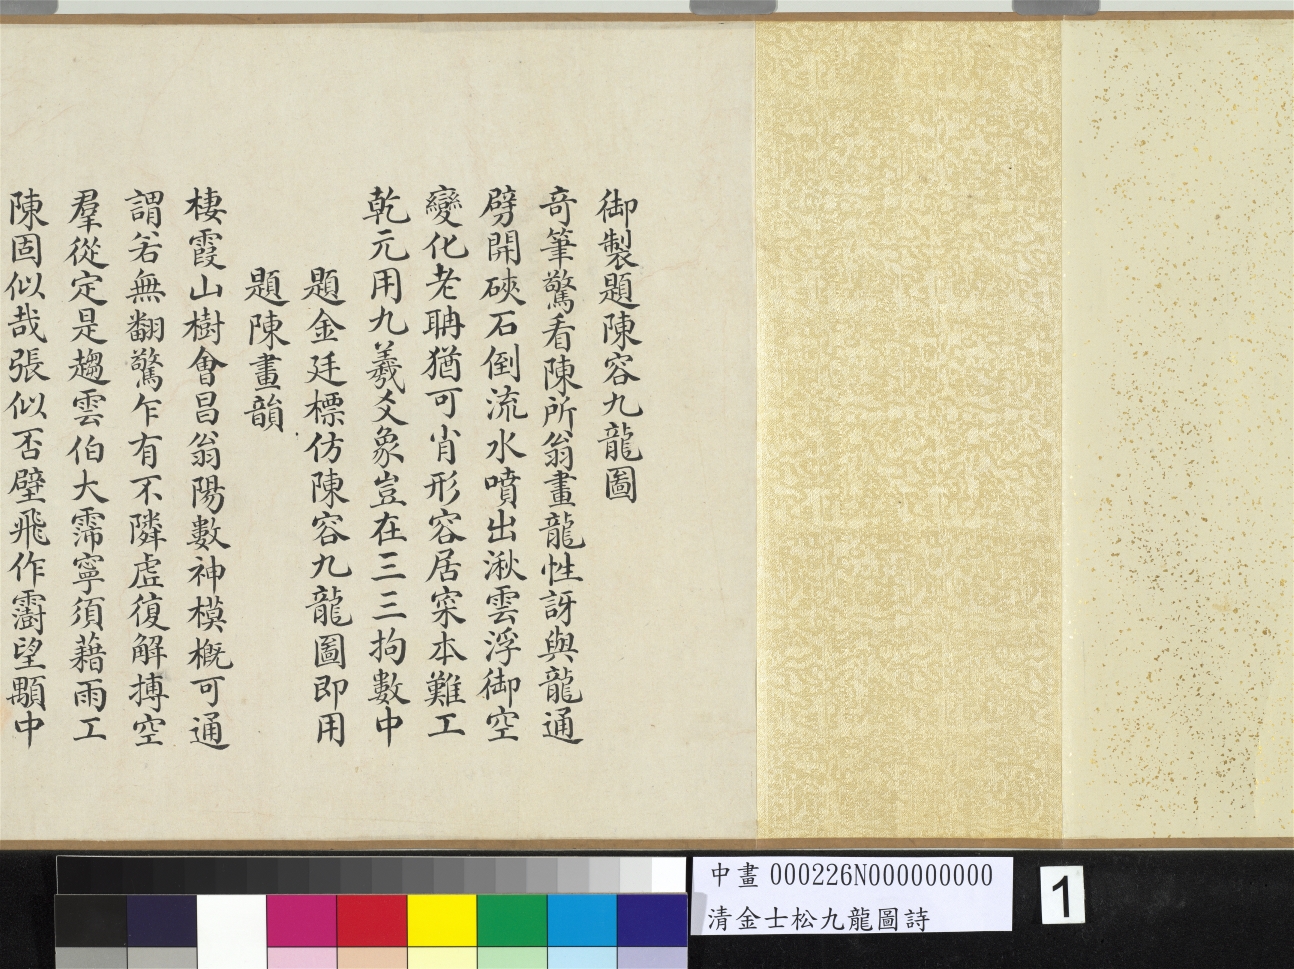 御製題陳容九龍圖
奇筆驚看陳所翁畫龍性訝與龍通
劈開硤石倒流水噴出湫雲浮御空
變化老聃猶可肖形容居寀本難工
乾元用九羲爻象豈在三三拘數中
題金廷標仿陳容九龍圖即用
題陳畫韻
棲霞山樹會昌翁陽數神模概可通
謂若無翻驚乍有不隣虛復解摶空
羣從定是趨雲伯大霈寧須藉雨工
陳固似哉張似否壁飛作霨望顒中
中畫 000226N000000000
清金士松九龍圖詩
1